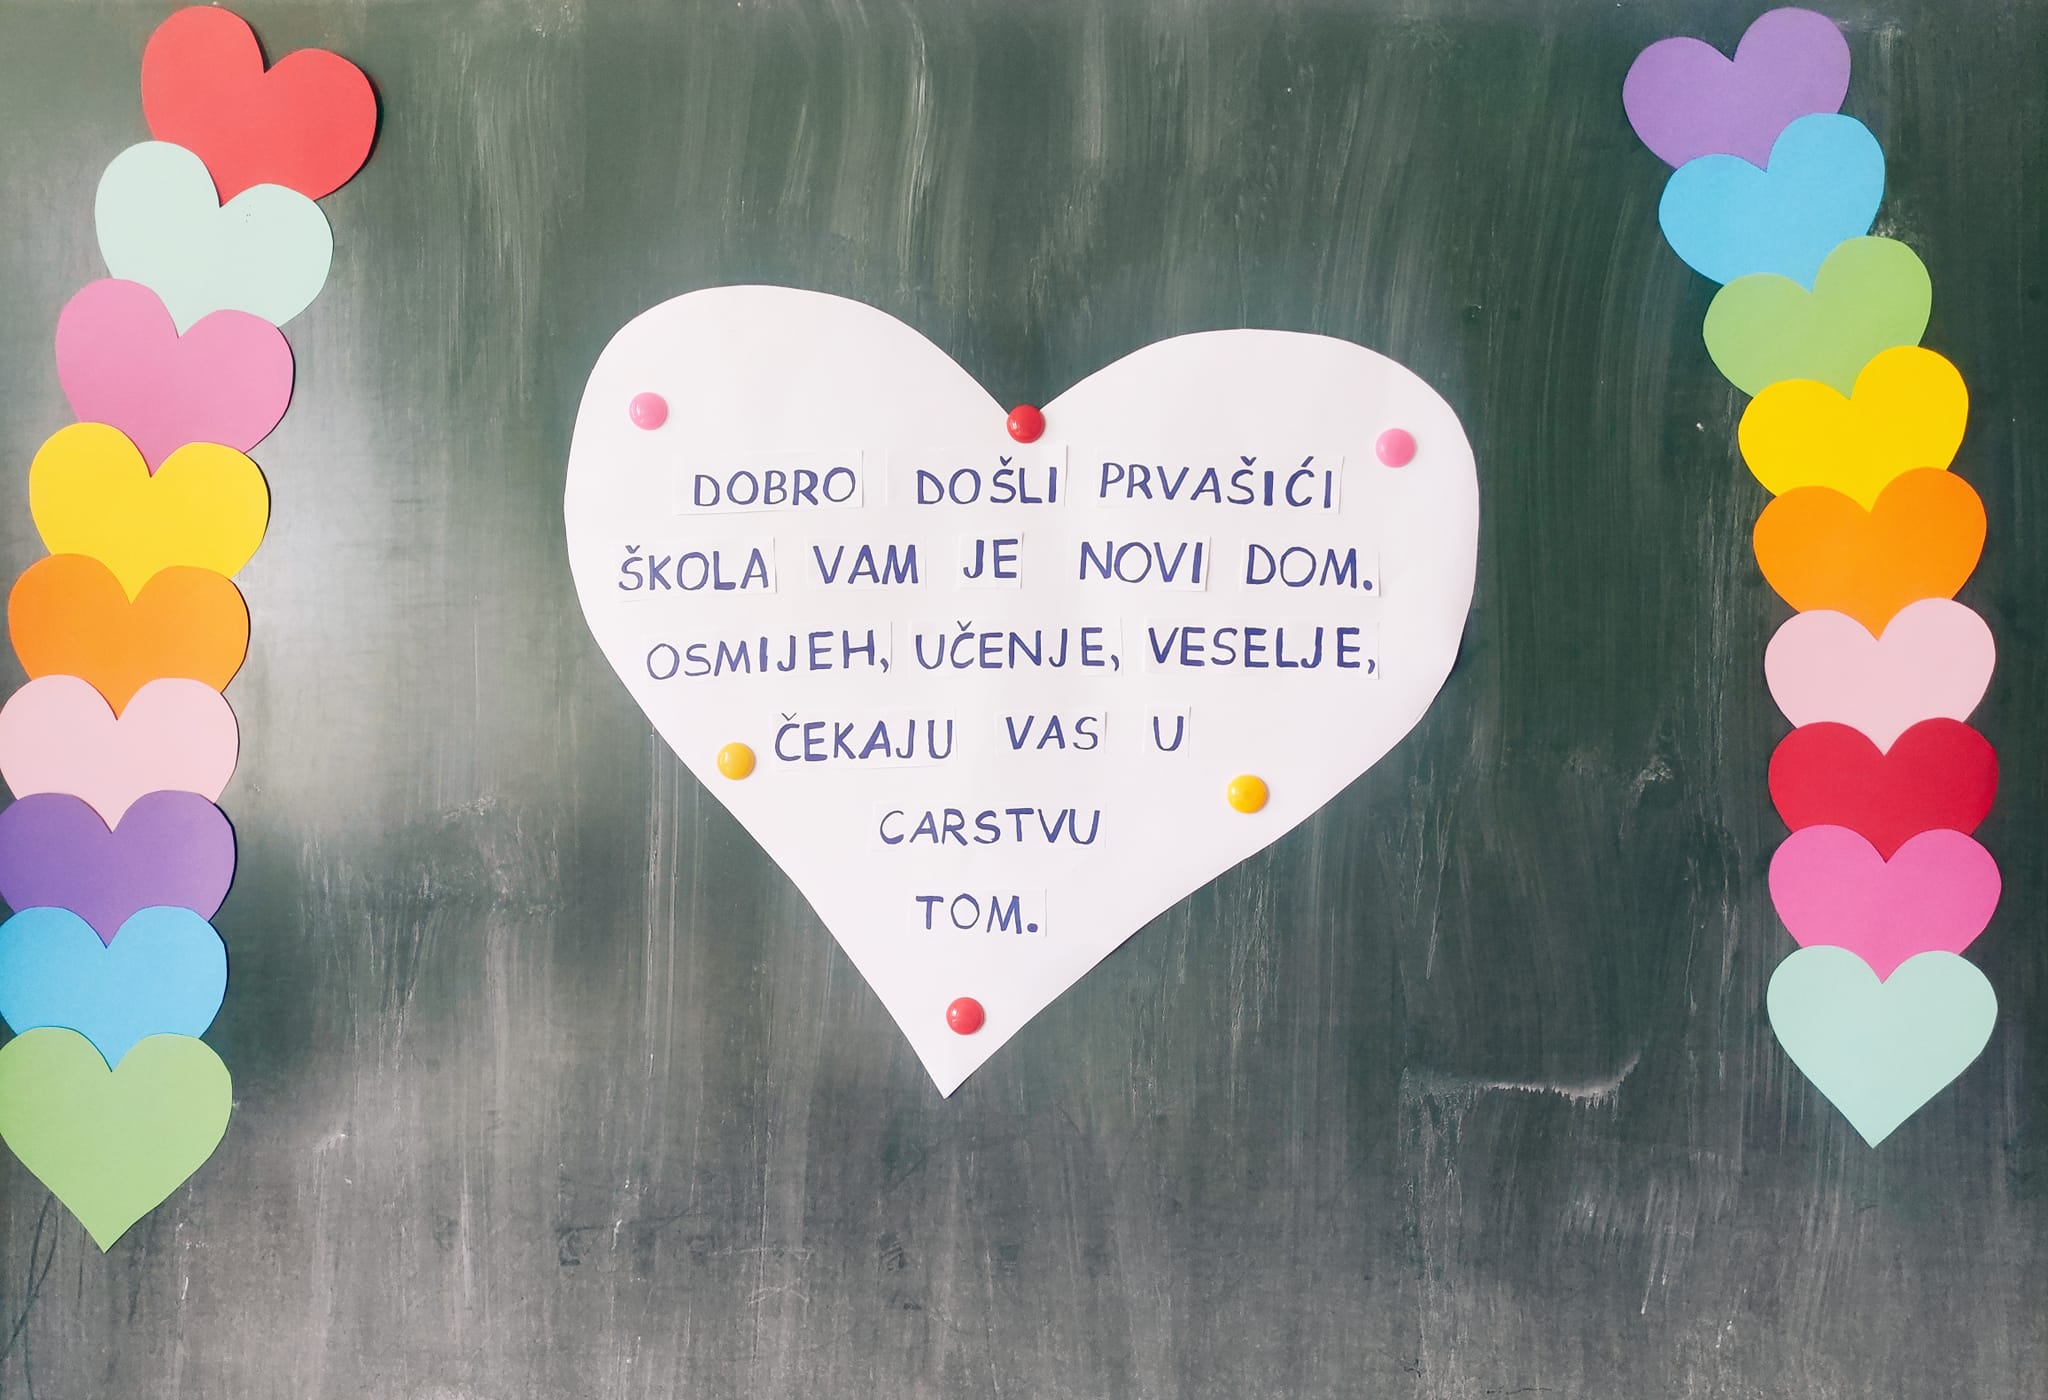 DOBRO DOŠLI PRVAŠIĆI
ŠKOLA VAM JE NOVI DOM.
OSMIJEH, UČENJE, VESELJE,
ČEKAJU VAS U
CARSTVU
TOM.